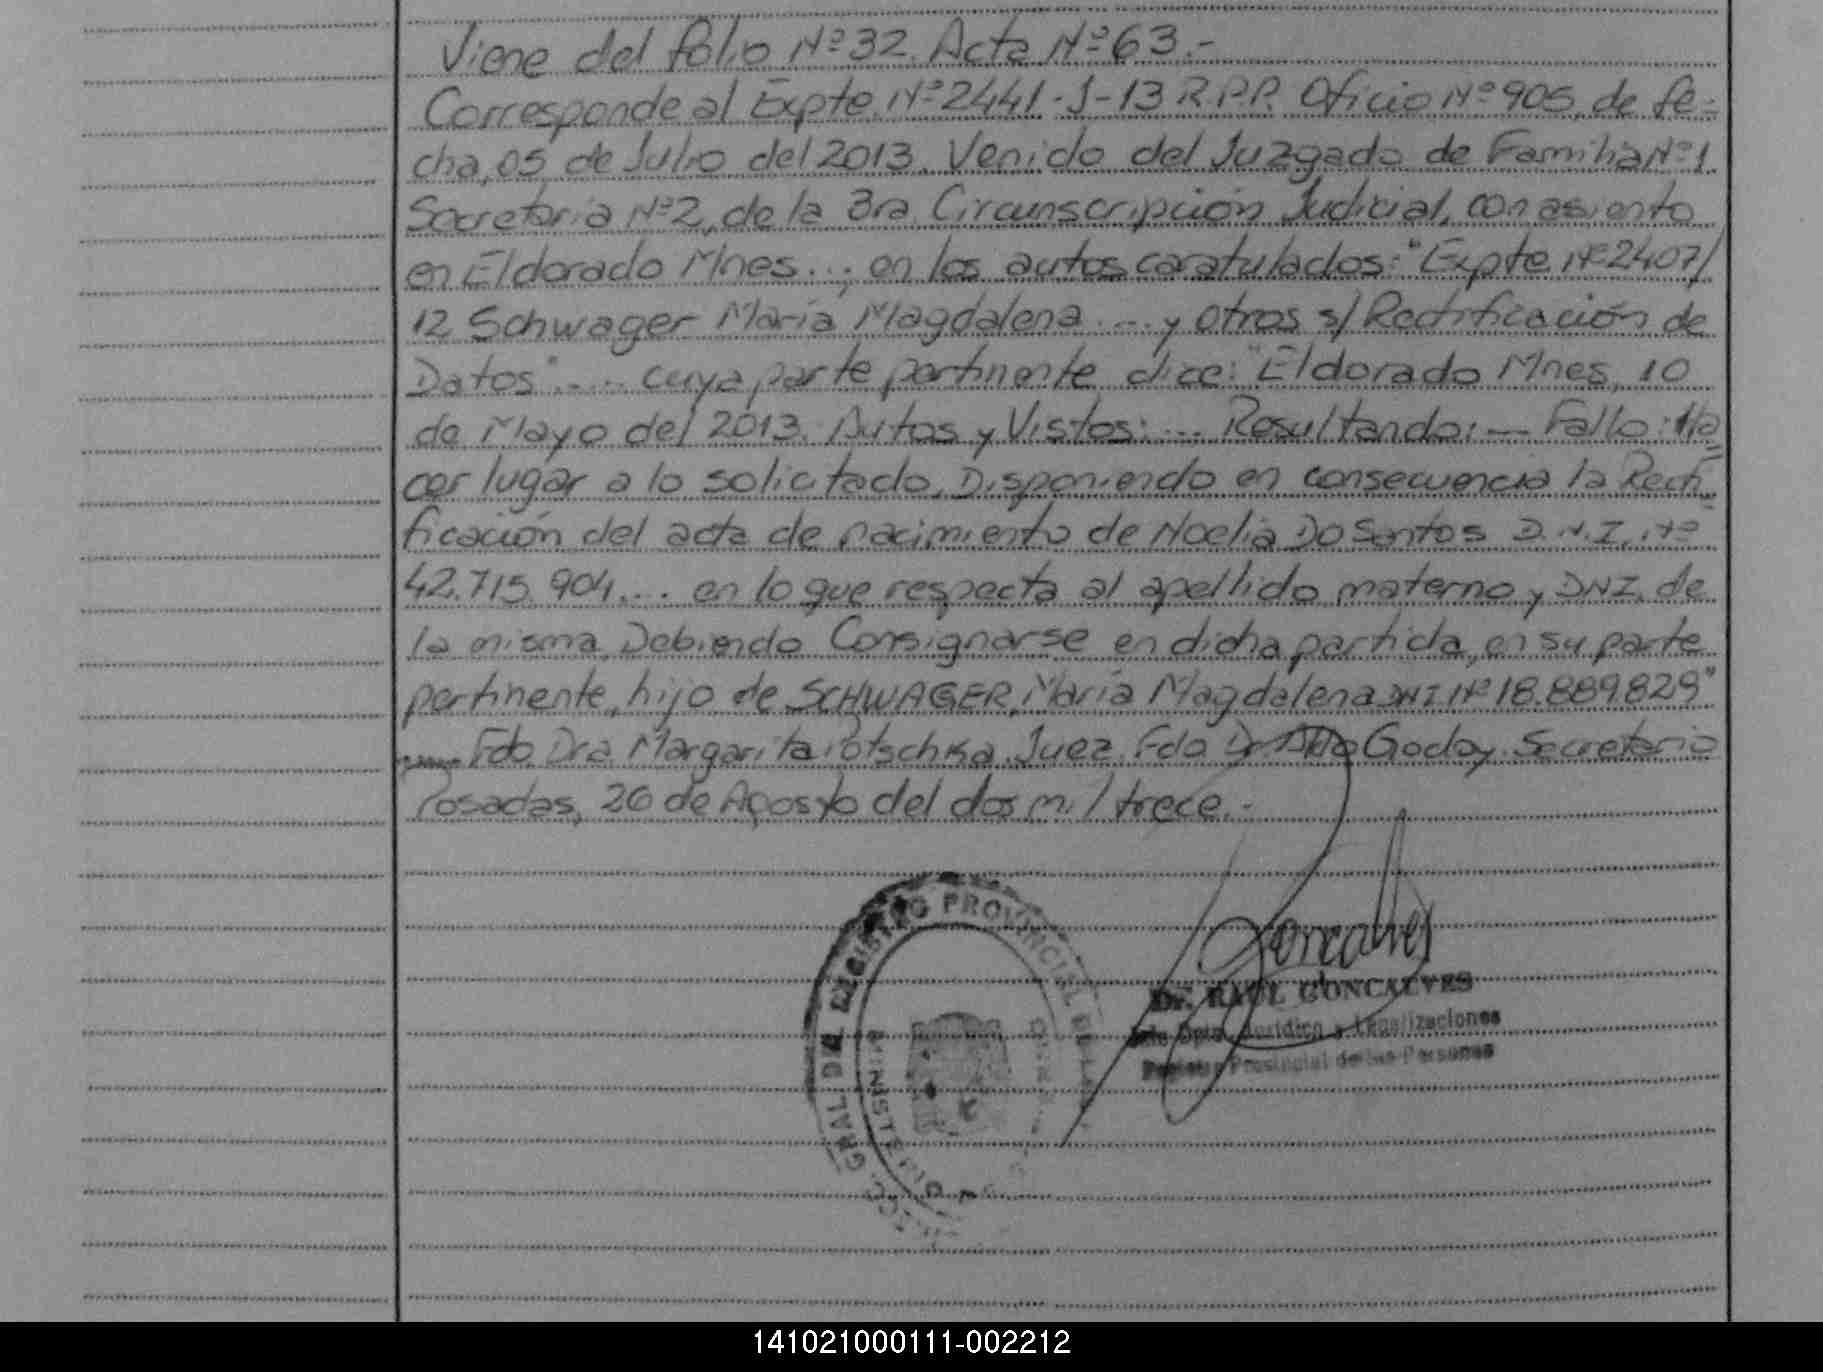 Viene del folio Nº 32. Acta Nº 63.-
Corresponde al Expte. Nº 2441-J-13 R.P.P. Oficio Nº 905, de fe-
cha, 05 de Julio del 2013. Venido del Juzgado de Familia Nº 1.
Secretaria Nº 2, de la 3ra. Circunscripción Judicial, con asiento
en Eldorado Mnes..., en los autos caratulados: "Expte Nº 2407/
12 Schwager María Magdalena .... y otros s/ Rectificación de
Datos" .... cuya parte pertinente dice: "Eldorado Mnes, 10
de Mayo del 2013. Autos y Vistos: ... Resultando: — Fallo: Ha=
cer lugar a lo solicitado, Disponiendo en consecuencia la Recti=
ficación del acta de nacimiento de Noelia Do Santos D.N.I. Nº
42.715.904.... en lo que respecta al apellido materno y DNI. de
la misma, Debiendo Consignarse en dicha partida, en su parte
pertinente, hijo de SCHWAGER, María Magdalena DNI Nº 18.889.829"
Fdo. Dra. Margarita Potschka. Juez. Fdo Dr. Aldo Godoy. Secretario
Posadas, 26 de Agosto del dos mil trece.-
GRAL. DEL REGISTRO PROVINCIAL DE LAS
MINISTERIO DE
Goncalves
Dr. RAUL GONCALVES
Jefe Dpto. Jurídico y Legalizaciones
Registro Provincial de las Personas
141021000111-002212